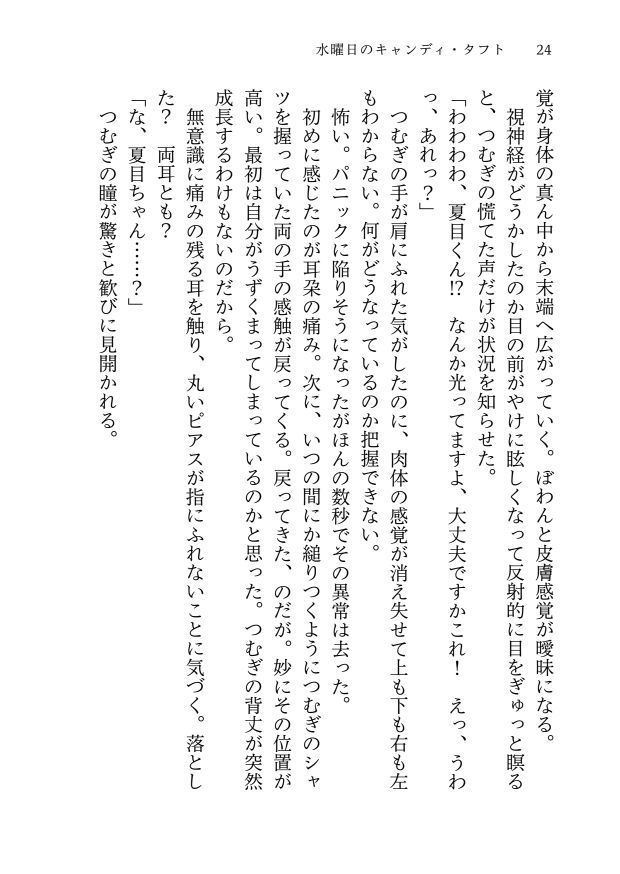 水曜日のキャンディ・タフト　24
覚が身体の真ん中から末端へ広がっていく。ぼわんと皮膚感覚が曖昧になる。
　視神経がどうかしたのか目の前がやけに眩しくなって反射的に目をぎゅっと瞑る
と、つむぎの慌てた声だけが状況を知らせた。
「わわわわ、夏目くん⁉　なんか光ってますよ、大丈夫ですかこれ！　えっ、うわ
っ、あれっ？」
　つむぎの手が肩にふれた気がしたのに、肉体の感覚が消え失せて上も下も右も左
もわからない。何がどうなっているのか把握できない。
　怖い。パニックに陥りそうになったがほんの数秒でその異常は去った。
　初めに感じたのが耳朶の痛み。次に、いつの間にか縋りつくようにつむぎのシャ
ツを握っていた両の手の感触が戻ってくる。戻ってきた、のだが。妙にその位置が
高い。最初は自分がうずくまってしまっているのかと思った。つむぎの背丈が突然
成長するわけもないのだから。
　無意識に痛みの残る耳を触り、丸いピアスが指にふれないことに気づく。落とし
た？　両耳とも？
「な、夏目ちゃん……？」
　つむぎの瞳が驚きと歓びに見開かれる。